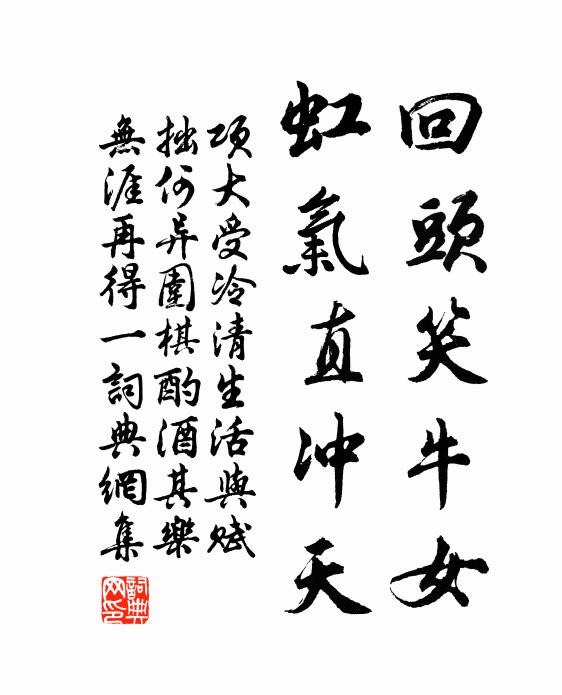 回頭笑牛女
虹氣直冲天
項大受冷清生活與賦
拙何异圍棋酌酒其樂
無涯再得一詞典網集
詞典網印